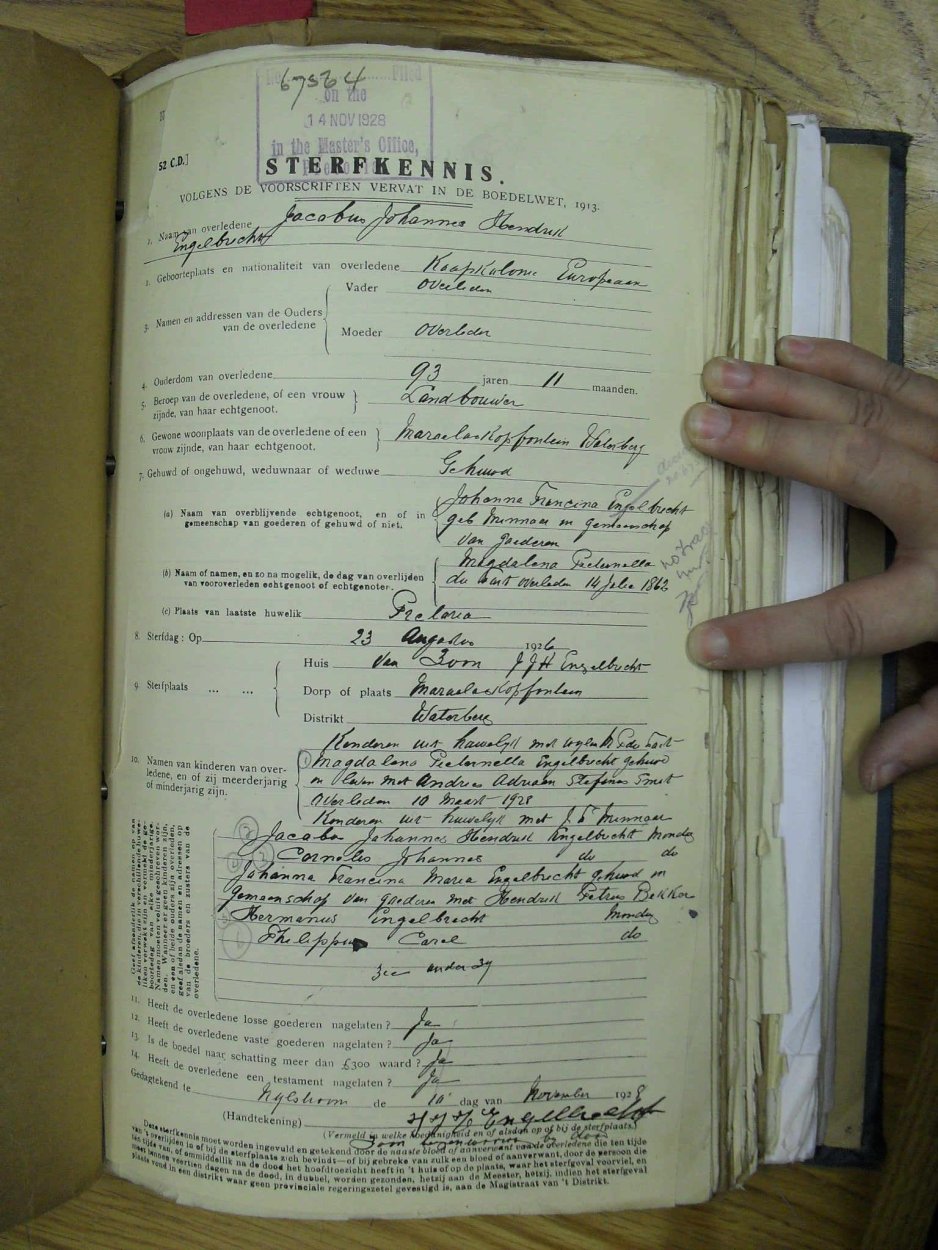 67524
Filed
on the
14 NOV 1928
in the Master's Office,
52 C.D.]
STERFKENNIS.
VOLGENS DE VOORSCHRIFTEN VERVAT IN DE BOEDELWET, 1913.
1. Naam van overledene Jacobus Johannes Hendrik
Engelbrecht
Geboorteplaats en nationaliteit van overledene Kaapkolonie Europeaan
3. Namen en addressen van de Ouders van de overledene
Vader Overleden
Moeder Overleden
4. Ouderdom van overledene 93 jaren 11 maanden.
5. Beroep van de overledene, of een vrouw zijnde, van haar echtgenoot. Landbouwer
6. Gewone woonplaats van de overledene of een vrouw zijnde, van haar echtgenoot. Maraelaskopfontein Waterberg
7. Gehuwd of ongehuwd, weduwnaar of weduwe Gehuwd
(a) Naam van overblijvende echtgenoot, en of in gemeenschap van goederen of gehuwd of niet.
Johanna Francina Engelbrecht
geb Minnaar in gemeenschap
van goederen
(b) Naam of namen, en zo na mogelik, de dag van overlijden van vooroverleden echtgenoot of echtgenoten.
Magdalena Pieternella
du Toit overleden 14 Julie 1862
(c) Plaats van laatste huwelik Pretoria
8. Sterfdag: Op 23 Augustus 1926
9. Sterfplaats ... ...
Huis Van Zoon JJH Engelbrecht
Dorp of plaats Maraelaskopfontein
Distrikt Waterberg
10. Namen van kinderen van overledene, en of zij meerderjarig of minderjarig zijn.
Kinderen uit huwelijk met wylen M P du Toit
(1) Magdalena Pieternella Engelbrecht gehuwd
en leven met Andries Adriaan Stefanus Smit
overleden 10 Maart 1928
Kinderen uit huwelijk met J. F Minnaar
(2) Jacobus Johannes Hendrik Engelbrecht Mondig
(3) Cornelis Johannes do do
Johanna Francina Maria Engelbrecht gehuwd in
gemeenschap van goederen met Hendrik Petrus Bekker
Hermanus Engelbrecht Mondig
Philippus Carel do
Zie ander zy
11. Heeft de overledene losse goederen nagelaten? Ja
12. Heeft de overledene vaste goederen nagelaten? Ja
13. Is de boedel naar schatting meer dan £300 waard? Ja
14. Heeft de overledene een testament nagelaten? Ja
Gedagtekend te Nylstroom de 10 dag van November 1928
(Handtekening) J J H Engelbrecht
(Vermeld in welke hoedanigheid en of alsdan op of bij de sterfplaats.)
Deze sterfkennis moet worden ingevuld en getekend door de naaste bloed of aanverwant van de overledene die ten tijde
van 't overlijden in of bij de sterfplaats zich bevindt—of bij gebreke van zulk een bloed of aanverwant, door de persoon die
ten tijde van, of onmiddellik na de dood het hoofdtoezicht heeft in 't huis of op de plaats, waar het sterfgeval voorviel, en
moet binnen veertien dagen na de dood, in dubbel, worden gezonden, hetzij aan de Meester, hetzij, indien het sterfgeval
plaats vond in een distrikt waar geen provinciale regeringszetel gevestigd is, aan de Magistraat van 't Distrikt.